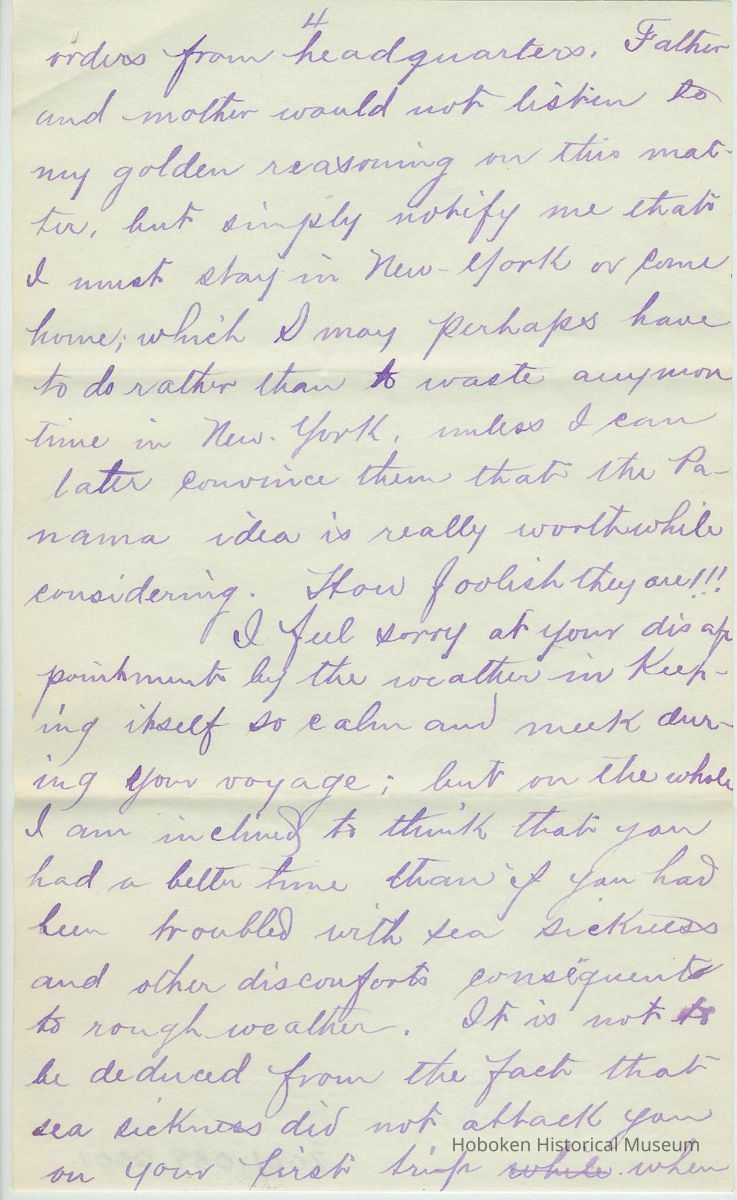 4
orders from headquarters. Father
and mother would not listen to
my golden reasoning on this mat-
ter, but simply notify me that
I must stay in New-York or come
home; which I may perhaps have
to do rather than to waste anymore
time in New-York, unless I can
later convince them that the Pa-
nama idea is really worthwhile
considering. How foolish they are!!!
I feel sorry at your disap
pointment by the weather in keep-
ing itself so calm and meek dur-
ing your voyage; but on the whole
I am inclined to think that you
had a better time than if you had
been troubled with sea sickness
and other discomforts consequent
to rough weather. It is not to
be deduced from the fact that
sea sickness did not attack you
on your first trip while when
Hoboken Historical Museum